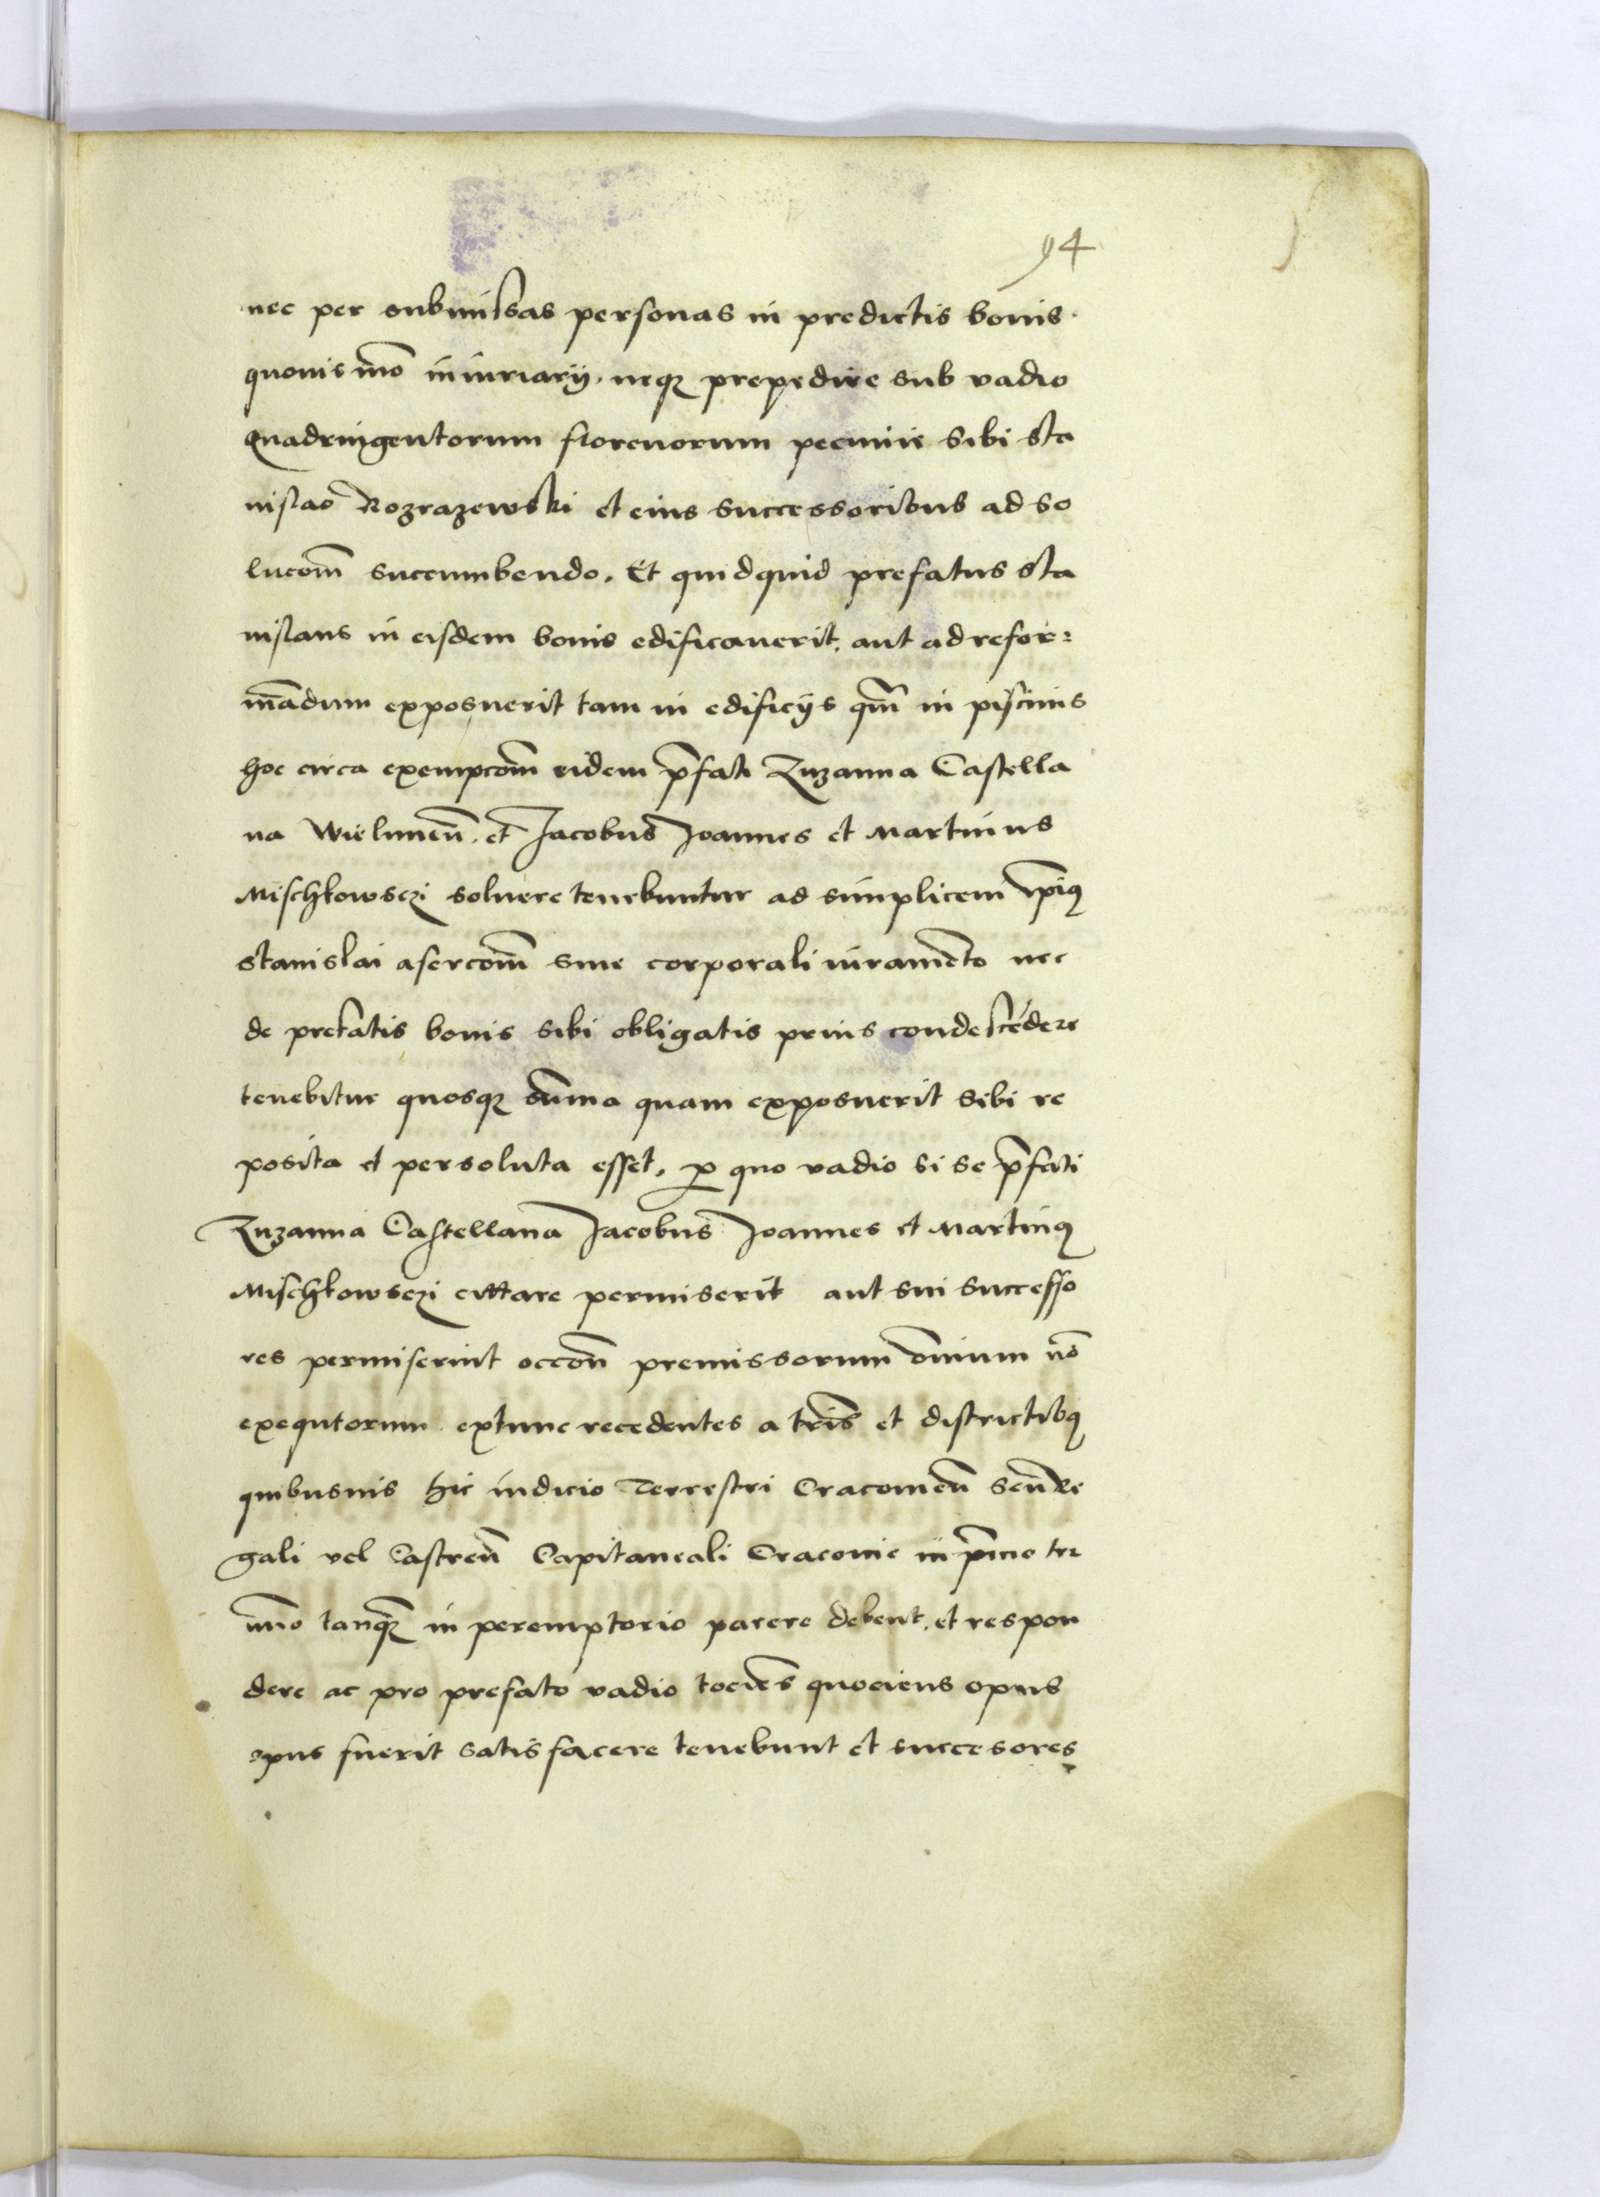 94
nec per submissas personas in predictis bonis
quouis mō iniuriarij neqȝ prepedire sub vadio
Quadringentorum florenorum pecunie sibi sta
nislao Rozrazewski et eius successoribus ad so
lucom̄ succumbendo. Et quidquid prefatus sta
nislaus in eisdem bonis edificauerit, aut ad refor⸗
mādum exposuerit tam in edificijs qm̄ in piscinis
hoc circa exempcom̄ eidem p̄fati Zuzanna Castella
na Wielunen̄. et Jacobus Joannes et Martinus
Mischkowsczi soluere tenebuntur ad simplicem ip̄iꝰ
Stanislai asercom̄ sine corporali iuramēto nec
de prefatis bonis sibi obligatis prius condescēdere
tenebitur quosqȝ sūma quam exposuerit sibi re
posita et persoluta esset, ꝓ quo vadio si se p̄fati
Zuzanna Castellana Jacobus Joannes et Martinꝰ
Mischkowsczi cittare permiserit aut sui successo
res permiserint occon̄ premissorum om̄ium nō
exequtorum extunc recedentes a tr̄is et districtibꝰ
quibusuis hic iudicio Terrestri Cracouien̄ seu Re
gali vel Castren̄ Capitaneali Cracouie in p̄mo ter
mino tanqȝ in peremptorio parere debent, et respon
dere ac pro prefato vadio tocie͞s quociens opus
opus fuerit satisfacere tenebunt et succesores